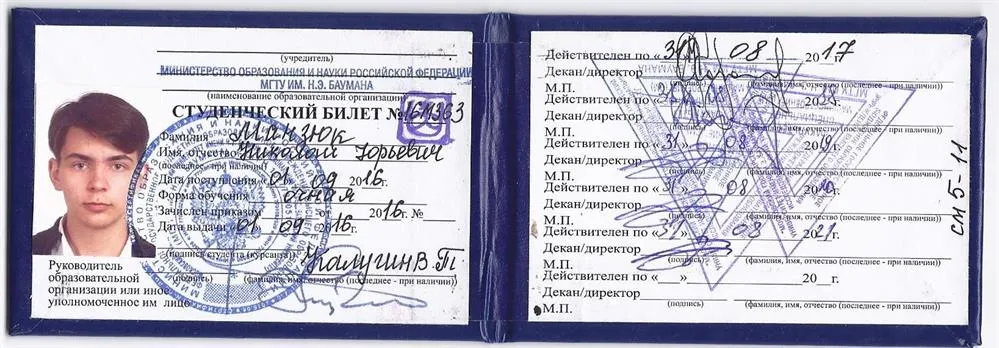 (учредитель)
МИНИСТЕРСТВО ОБРАЗОВАНИЯ И НАУКИ РОССИЙСКОЙ ФЕДЕРАЦИИ
МГТУ ИМ. Н.Э. БАУМАНА
(наименование образовательной организации)
СТУДЕНЧЕСКИЙ БИЛЕТ №
Фамилия Манзюк
Имя, отчество Николай Юрьевич
(последнее - при наличии)
Дата поступления «01» 09 2016г.
Форма обучения очная
Зачислен приказом от 2016г. №
Дата выдачи «01» 09 2016г.
(подпись студента (курсанта))
Калугин В.Т.
Руководитель
образовательной
организации или иное
уполномоченное им лицо
(подпись) (фамилия, имя, отчество (последнее - при наличии)
Действителен по «31» 08 2017г.
Декан/директор
(подпись) (фамилия, имя, отчество (последнее - при наличии)
М.П.
Действителен по « » 08 20 г.
Декан/директор
(подпись) (фамилия, имя, отчество (последнее - при наличии)
М.П.
Действителен по «31» 08 20 г.
Декан/директор
(подпись) (фамилия, имя, отчество (последнее - при наличии)
М.П.
Действителен по «31» 08 20 г.
Декан/директор
(подпись) (фамилия, имя, отчество (последнее - при наличии)
М.П.
Действителен по «31» 08 2021г.
Декан/директор
(подпись) (фамилия, имя, отчество (последнее - при наличии)
М.П.
Действителен по «__»____ 20__г.
Декан/директор
(подпись) (фамилия, имя, отчество (последнее - при наличии)
М.П.
СМ5-11